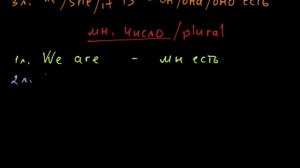 3л. he/she/it is - он/она/оно есть
мн. число/plural
1л. We are - мы есть
2л.